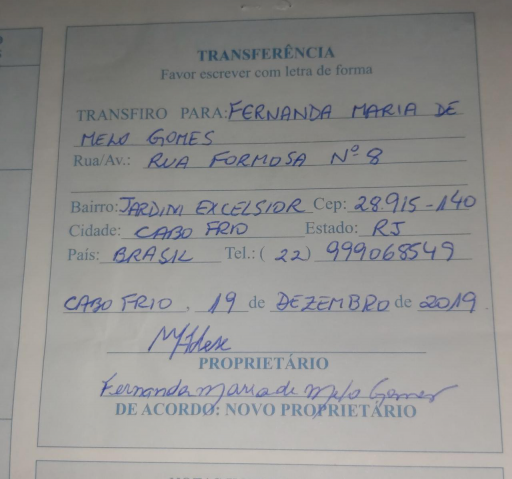 TRANSFERÊNCIA
Favor escrever com letra de forma
TRANSFIRO PARA: FERNANDA MARIA DE
MELO GOMES
Rua/Av.: RUA FORMOSA Nº 8
Bairro: JARDIM EXCELSIOR Cep: 28.915-140
Cidade: CABO FRIO Estado: RJ
País: BRASIL Tel.: (22) 999068549
CABO FRIO, 19 de DEZEMBRO de 2019
PROPRIETÁRIO
Fernanda Maria de Melo Gomes
DE ACORDO: NOVO PROPRIETÁRIO